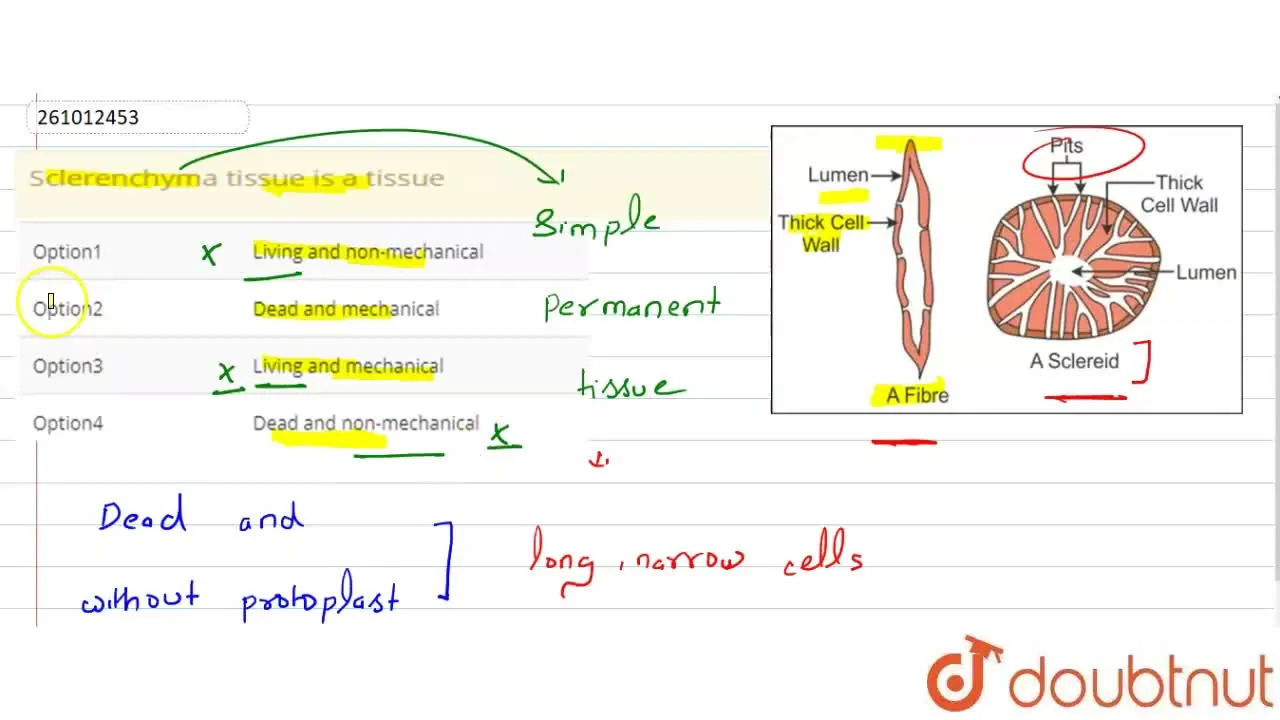 261012453
Sclerenchyma tissue is a tissue
Option1 x Living and non-mechanical
Option2 Dead and mechanical
Option3 x Living and mechanical
Option4 Dead and non-mechanical x
Simple
permanent
tissue
Dead and
without protoplast
long, narrow cells
Lumen
Thick Cell
Wall
A Fibre
Pits
Thick
Cell Wall
Lumen
A Sclereid
doubtnut